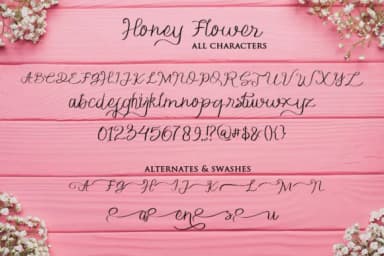 Honey Flower
ALL CHARACTERS
ABCDEFGHIJKLMNOPQRSTUVWXYZ
abcdefghijklmnopqrstuvwxyz
0123456789!?@#$&(){}
ALTERNATES & SWASHES
A F H I J K L M N
e a en s u